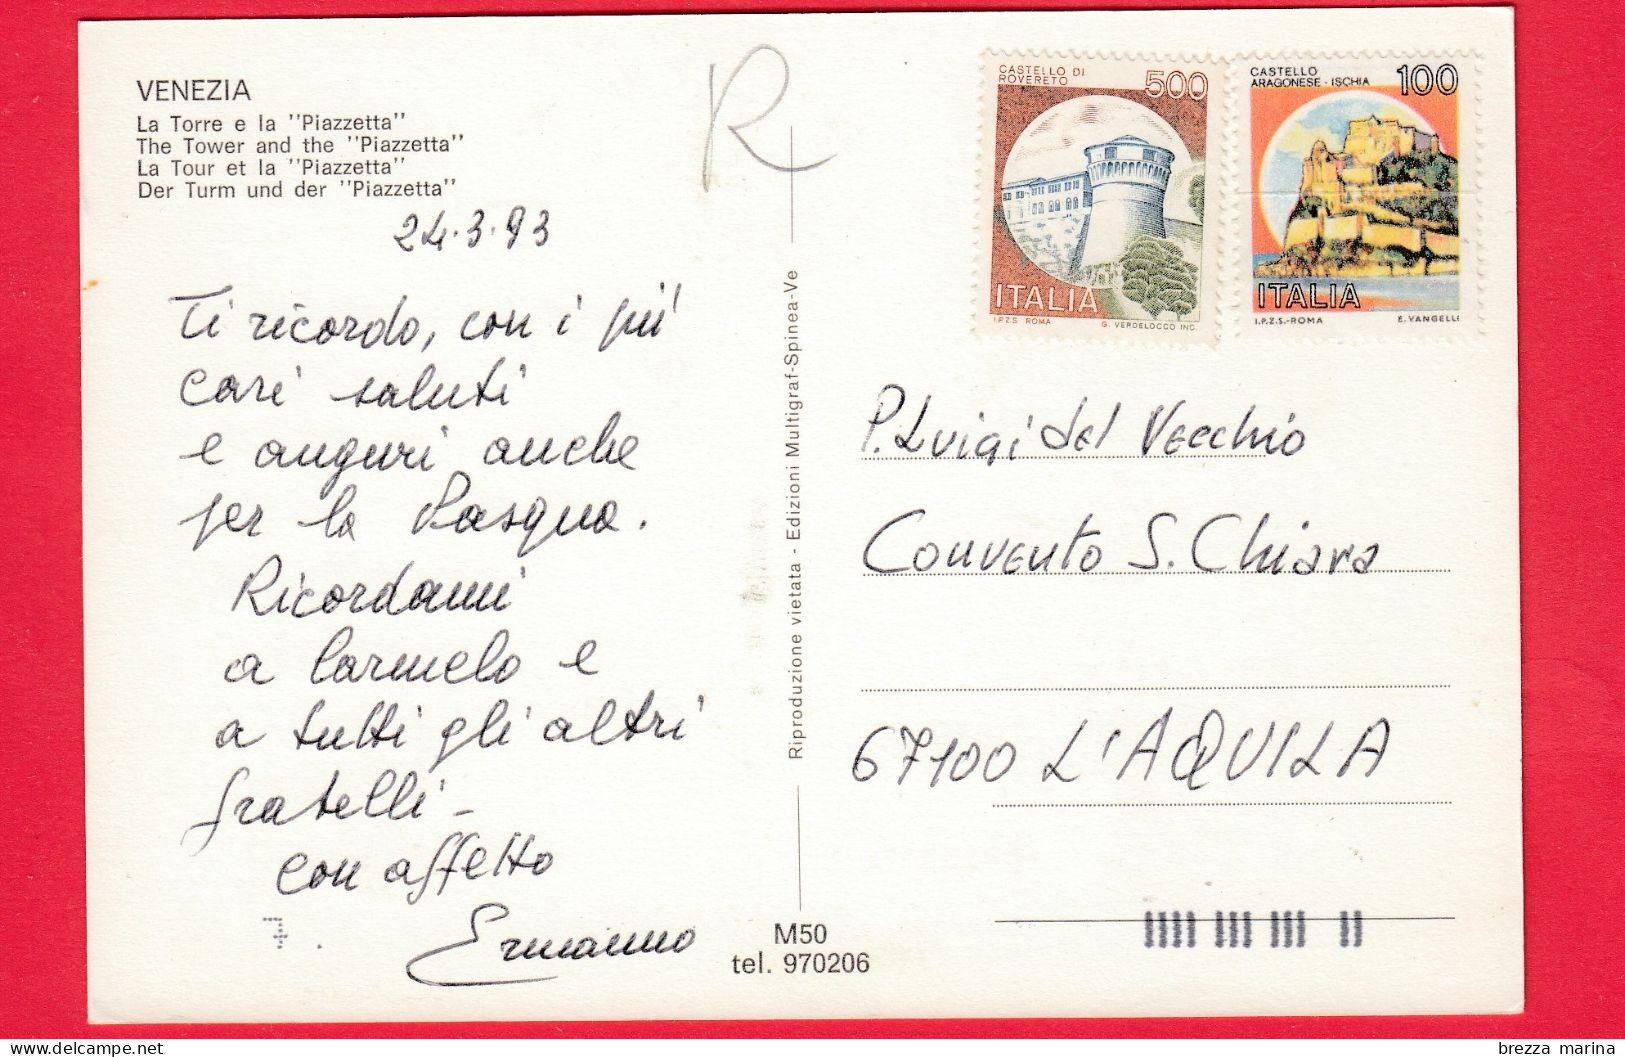 VENEZIA
La Torre e la "Piazzetta"
The Tower and the "Piazzetta"
La Tour et la "Piazzetta"
Der Turm und der "Piazzetta"
24.3.93
Ti ricordo, con i più
cari saluti
e auguri anche
per la Pasqua.
Ricordami
a Carmelo e
a tutti gli altri
fratelli -
con affetto
Ermanno
7
R
Riproduzione vietata - Edizioni Multigraf-Spinea-Ve
M50
tel. 970206
CASTELLO DI
ROVERETO
500
ITALIA
I.P.Z.S. ROMA G. VERDELOCCO INC.
CASTELLO
ARAGONESE - ISCHIA
100
ITALIA
I.P.Z.S.-ROMA E. VANGELLI
P. Luigi del Vecchio
Convento S. Chiara
67100 L'AQUILA
brezza marina